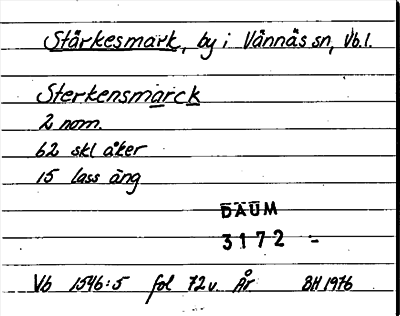 Stärkesmark, by i Vännäs sn, Vb.l.
Sterkensmarck
2 nom.
62 skl åker
15 lass äng
DAUM
3172 :-
Vb 1546:5 fol 72v. År BH 1976